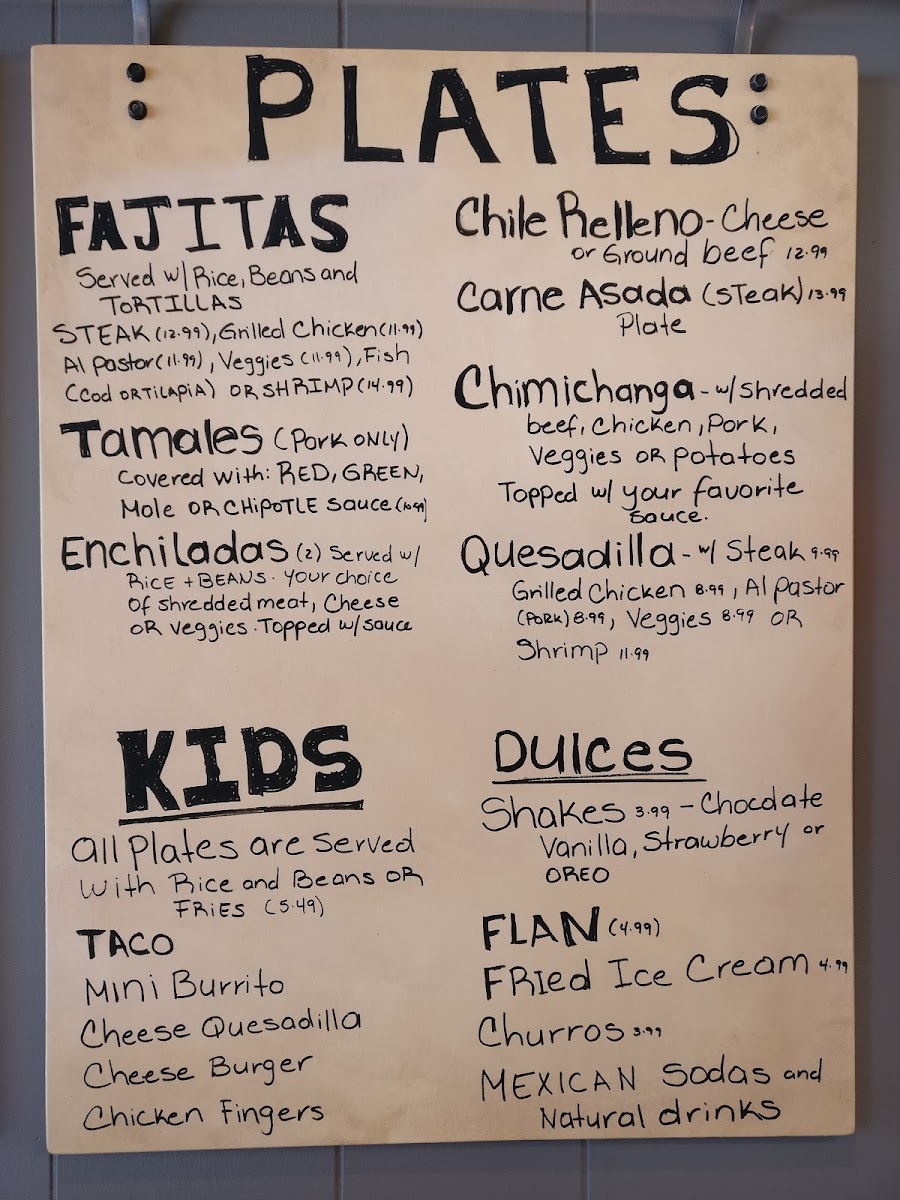 PLATES
FAJITAS
Served w/ Rice, Beans and
TORTILLAS
STEAK (12.99), Grilled Chicken (11.99)
Al Pastor (11.99), Veggies (11.99), Fish
(Cod OR TILAPIA) OR SHRIMP (14.99)
Tamales (Pork ONLY)
Covered with: RED, GREEN,
Mole OR CHIPOTLE Sauce (10.99)
Enchiladas (2) Served w/
RICE + BEANS. Your choice
Of shredded meat, Cheese
OR veggies. Topped w/ sauce
Chile Relleno - Cheese
or Ground beef 12.99
Carne Asada (STeak) 13.99
Plate
Chimichanga - w/ Shredded
beef, Chicken, Pork,
Veggies OR potatoes
Topped w/ your favorite
Sauce.
Quesadilla - w/ Steak 9.99
Grilled Chicken 8.99, Al Pastor
(PORK) 8.99, Veggies 8.99 OR
Shrimp 11.99
KIDS
All Plates are Served
With Rice and Beans OR
FRIES (5.49)
TACO
Mini Burrito
Cheese Quesadilla
Cheese Burger
Chicken Fingers
Dulces
Shakes 3.99 - Chocolate
Vanilla, Strawberry or
OREO
FLAN (4.99)
FRied Ice Cream 4.99
Churros 3.99
MEXICAN Sodas and
Natural drinks